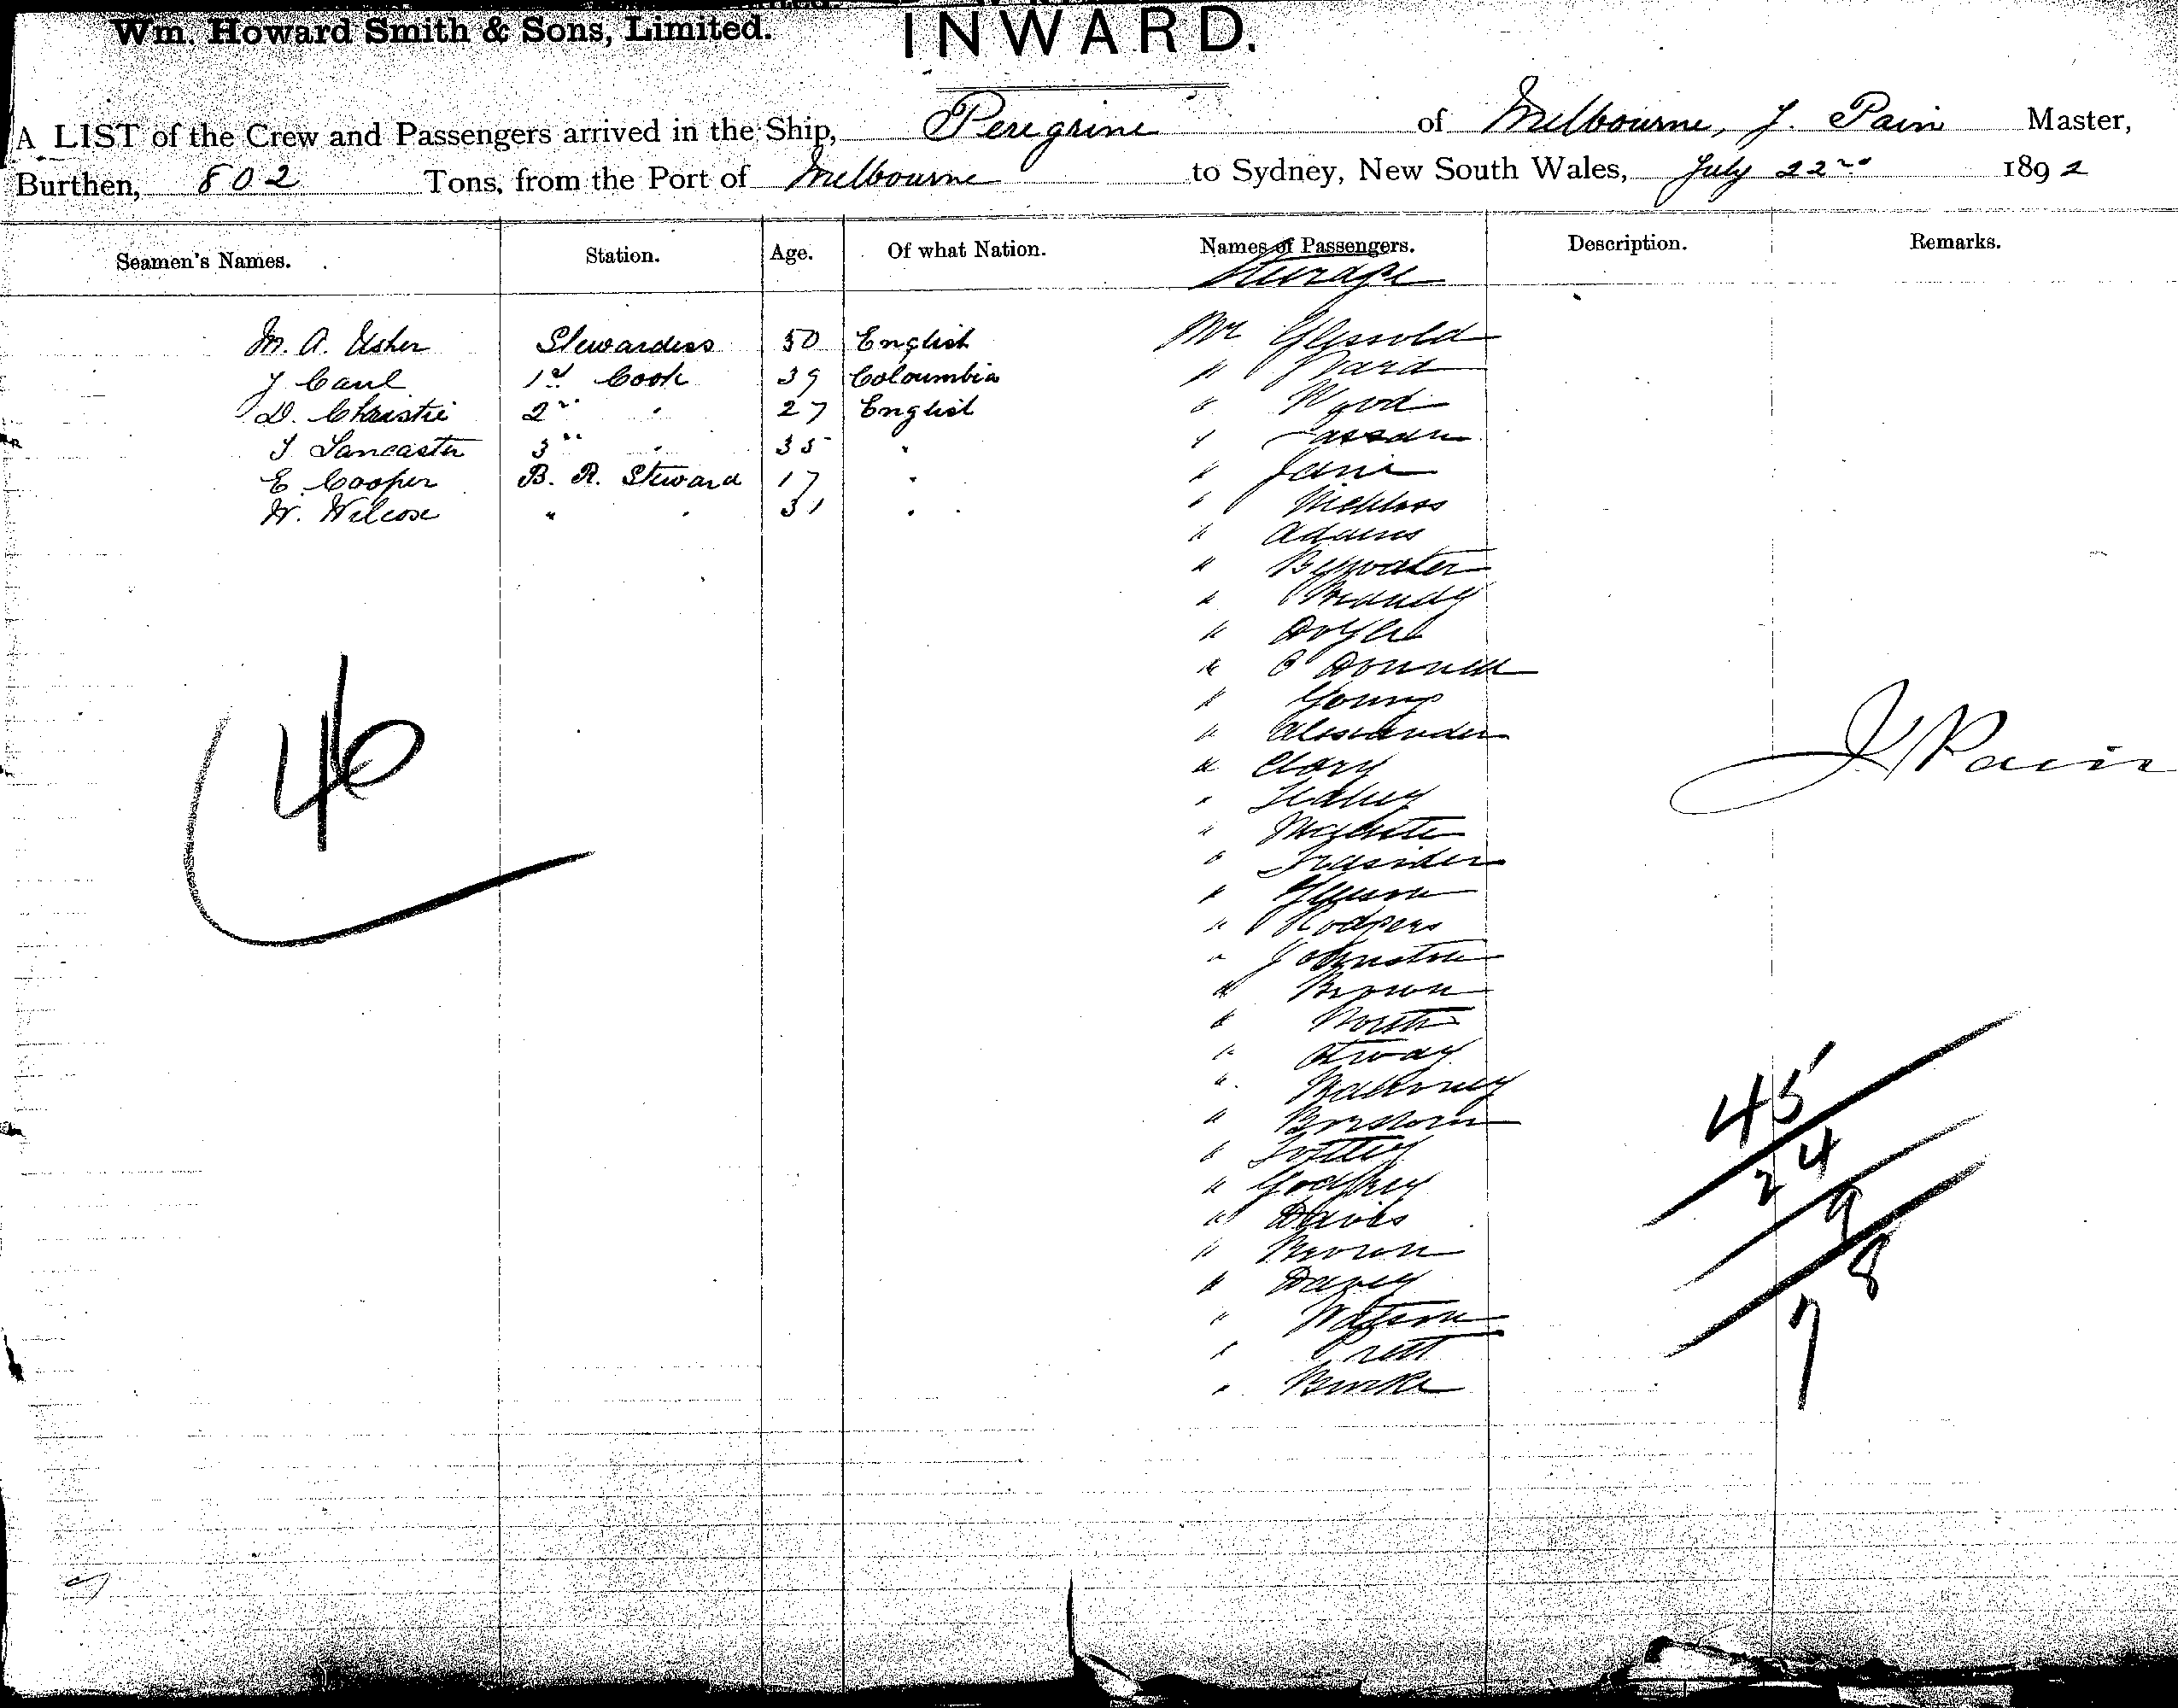 Wm. Howard Smith & Sons, Limited.
INWARD.
A LIST of the Crew and Passengers arrived in the Ship, Peregrine of Melbourne, J. Pain Master,
Burthen, 802 Tons, from the Port of Melbourne to Sydney, New South Wales, July 22nd 1892
Seamen's Names. Station. Age. Of what Nation. Names of Passengers. Description. Remarks.
Steerage
M. A. Usher Stewardess 50 English Mr
J Caul 1st Cook 39 Coloumbia " Ward
D. Christie 2nd " 27 English " Wood
J Lancaster 3rd " 35 "
E. Cooper B. R. Steward 17 " " Jane
W. Wilcox " " 31 " "
" Adams
" Bywater
"
" Doyle
" O'Donnell
" Young
" Alexander
" Clary
"
"
"
"
" Rodgers
" Johnston
" Brown
" North
" Otway
" Mahoney
"
"
" Godfrey
" Davis
" Brown
" Davey
" Watson
"
" Burke
46
J Pain
45
24
9
8
7